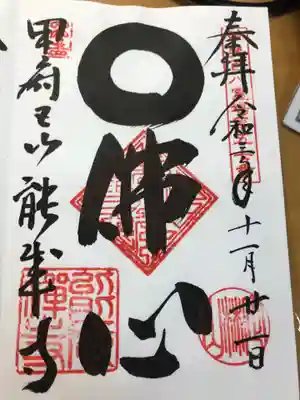 奉拝 令和三年 十一月廿一日
佛心
甲府五山 能成寺